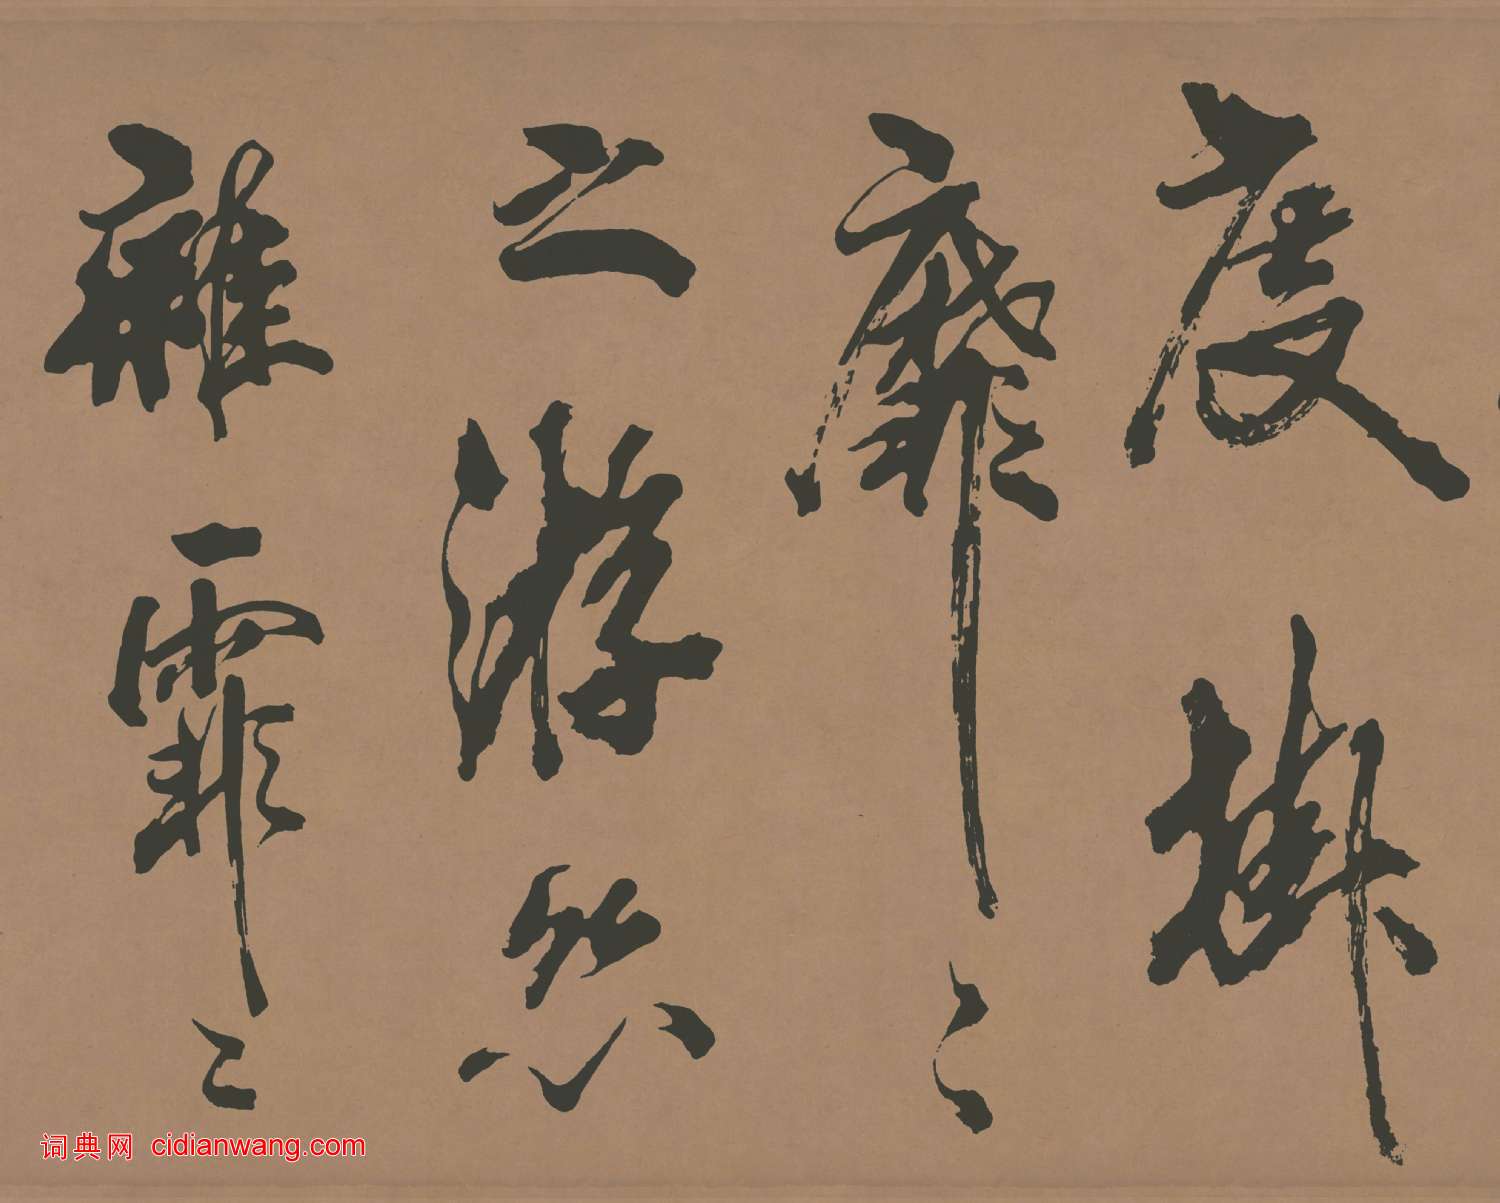 度掛
靡〻
之游絲
雜霏〻
词典网 cidianwang.com